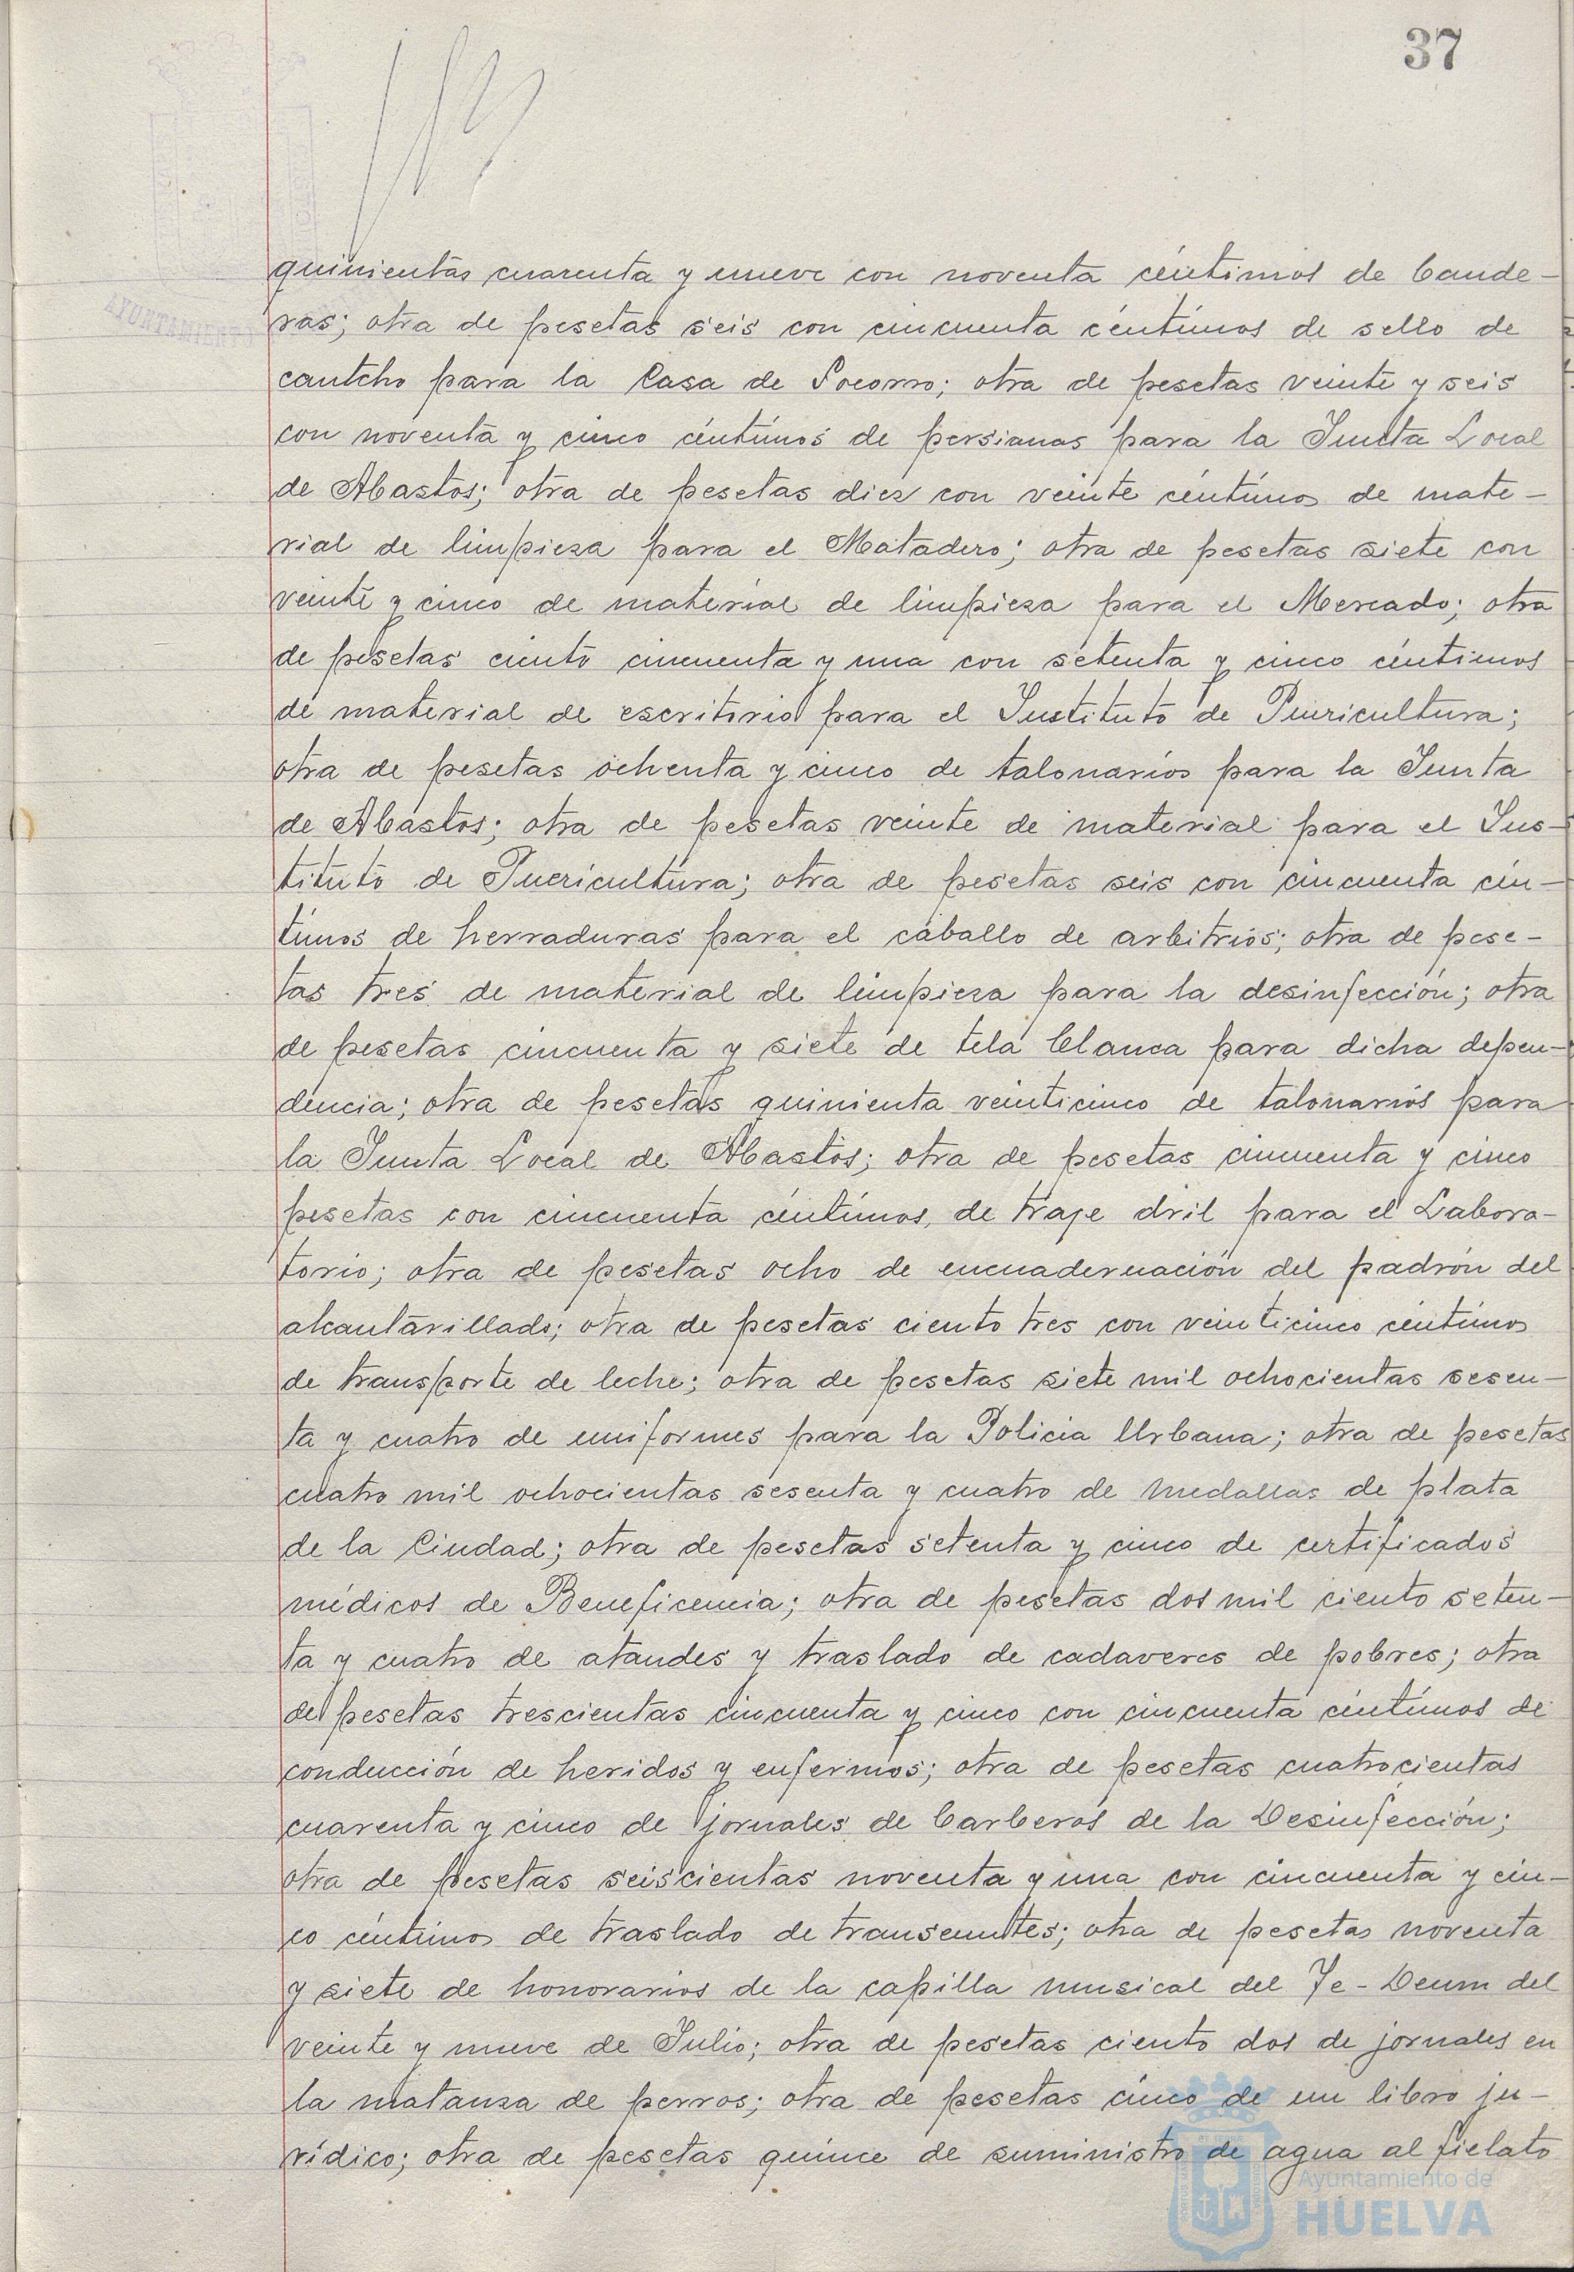 37
quinientas cuarenta y nueve con noventa céntimos de bande-
ras; otra de pesetas seis con cincuenta céntimos de sello de
cautcho para la Casa de Socorro; otra de pesetas veinte y seis
con noventa y cinco céntimos de persianas para la Junta Local
de Abastos; otra de pesetas diez con veinte céntimos de mate-
rial de limpieza para el Matadero; otra de pesetas siete con
veinte y cinco de material de limpieza para el Mercado; otra
de pesetas ciento cincuenta y una con setenta y cinco céntimos
de material de escritorio para el Instituto de Puericultura;
otra de pesetas ochenta y cinco de talonarios para la Junta
de Abastos; otra de pesetas veinte de material para el Ins-
tituto de Puericultura; otra de pesetas seis con cincuenta cén-
timos de herraduras para el caballo de arbitrios; otra de pese-
tas tres de material de limpieza para la desinfección; otra
de pesetas cincuenta y siete de tela blanca para dicha depen-
dencia; otra de pesetas quinienta veinticinco de talonarios para
la Junta Local de Abastos; otra de pesetas cincuenta y cinco
pesetas con cincuenta céntimos, de traje dril para el Labora-
torio; otra de pesetas ocho de encuadernación del padrón del
alcantarillado; otra de pesetas ciento tres con veinticinco céntimos
de transporte de leche; otra de pesetas siete mil ochocientas sesen-
ta y cuatro de uniformes para la Policia Urbana; otra de pesetas
cuatro mil ochocientas sesenta y cuatro de medallas de plata
de la Ciudad; otra de pesetas setenta y cinco de certificados
médicos de Beneficencia; otra de pesetas dos mil ciento seten-
ta y cuatro de ataudes y traslado de cadaveres de pobres; otra
de pesetas trescientas cincuenta y cinco con cincuenta céntimos de
conducción de heridos y enfermos; otra de pesetas cuatrocientas
cuarenta y cinco de jornales de barberos de la Desinfección;
otra de pesetas seiscientas noventa y una con cincuenta y cin-
co céntimos de traslado de transeuntes; otra de pesetas noventa
y siete de honorarios de la capilla musical del Te-Deum del
veinte y nueve de Julio; otra de pesetas ciento dos de jornales en
la matanza de perros; otra de pesetas cinco de un libro ju-
rídico; otra de pesetas quince de suministro de agua al fielato
AYUNTAMIENTO
Ayuntamiento de
HUELVA